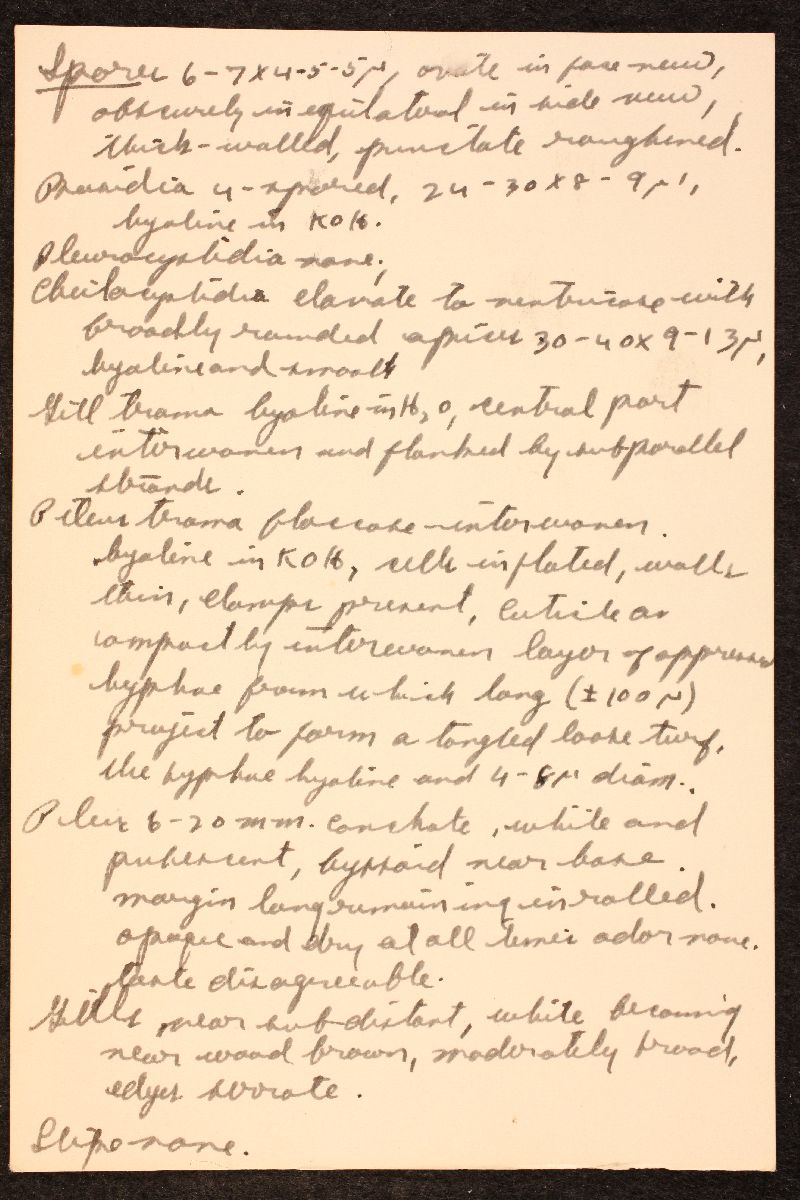 Spores 6-7 x 4-5-5µ, ovate in face view,
obscurely inequilateral in side view,
thick-walled, punctate roughened.
Basidia 4-spored, 24-30 x 8-9µ,
hyaline in KOH.
Pleurocystidia none;
Cheilocystidia clavate to ventricose with
broadly rounded apices 30-40 x 9-13µ,
hyaline and smooth
Gill trama hyaline in H2O, central part
interwoven and flanked by subparallel
strands.
Pileus trama floccose-interwoven.
hyaline in KOH, cells inflated, walls
thin, clamps present, cuticle a
compactly interwoven layer of appressed
hyphae from which long (±100µ)
project to form a tangled loose turf,
the hyphae hyaline and 4-8µ diam.
Pileus 6-20 mm. conchate, white and
pubescent, byssoid near base.
margin long remaining inrolled.
opaque and dry at all times odor none.
taste disagreeable.
Gills near subdistant, white becoming
near wood brown, moderately broad,
edges serrate.
Stipe none.